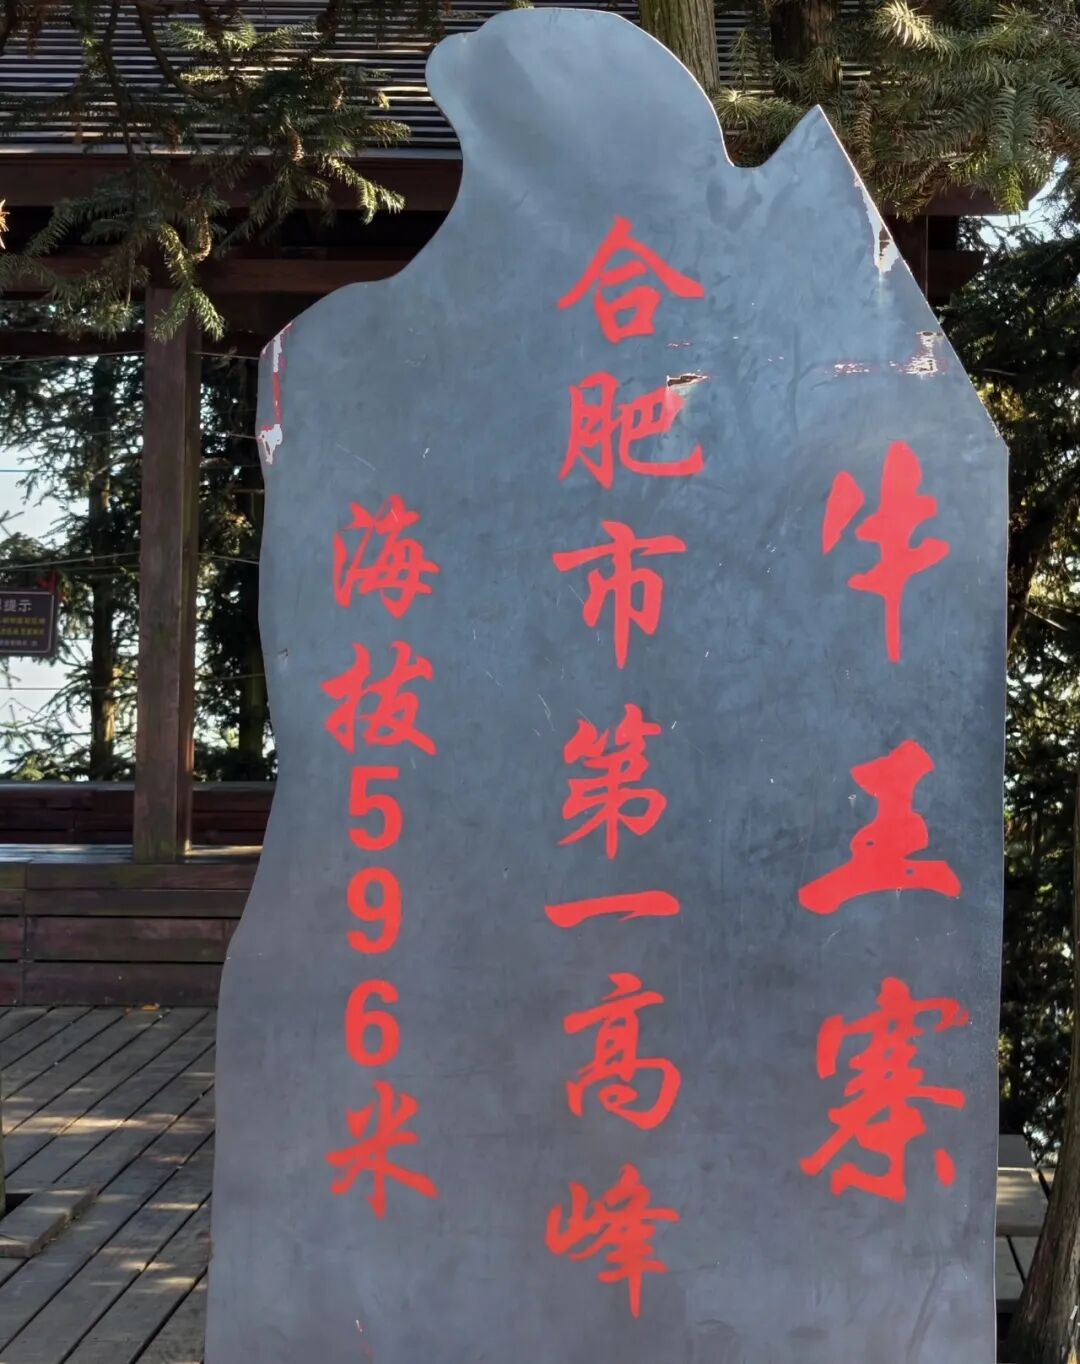 牛王寨
合肥市第一高峰
海拔596米
提示